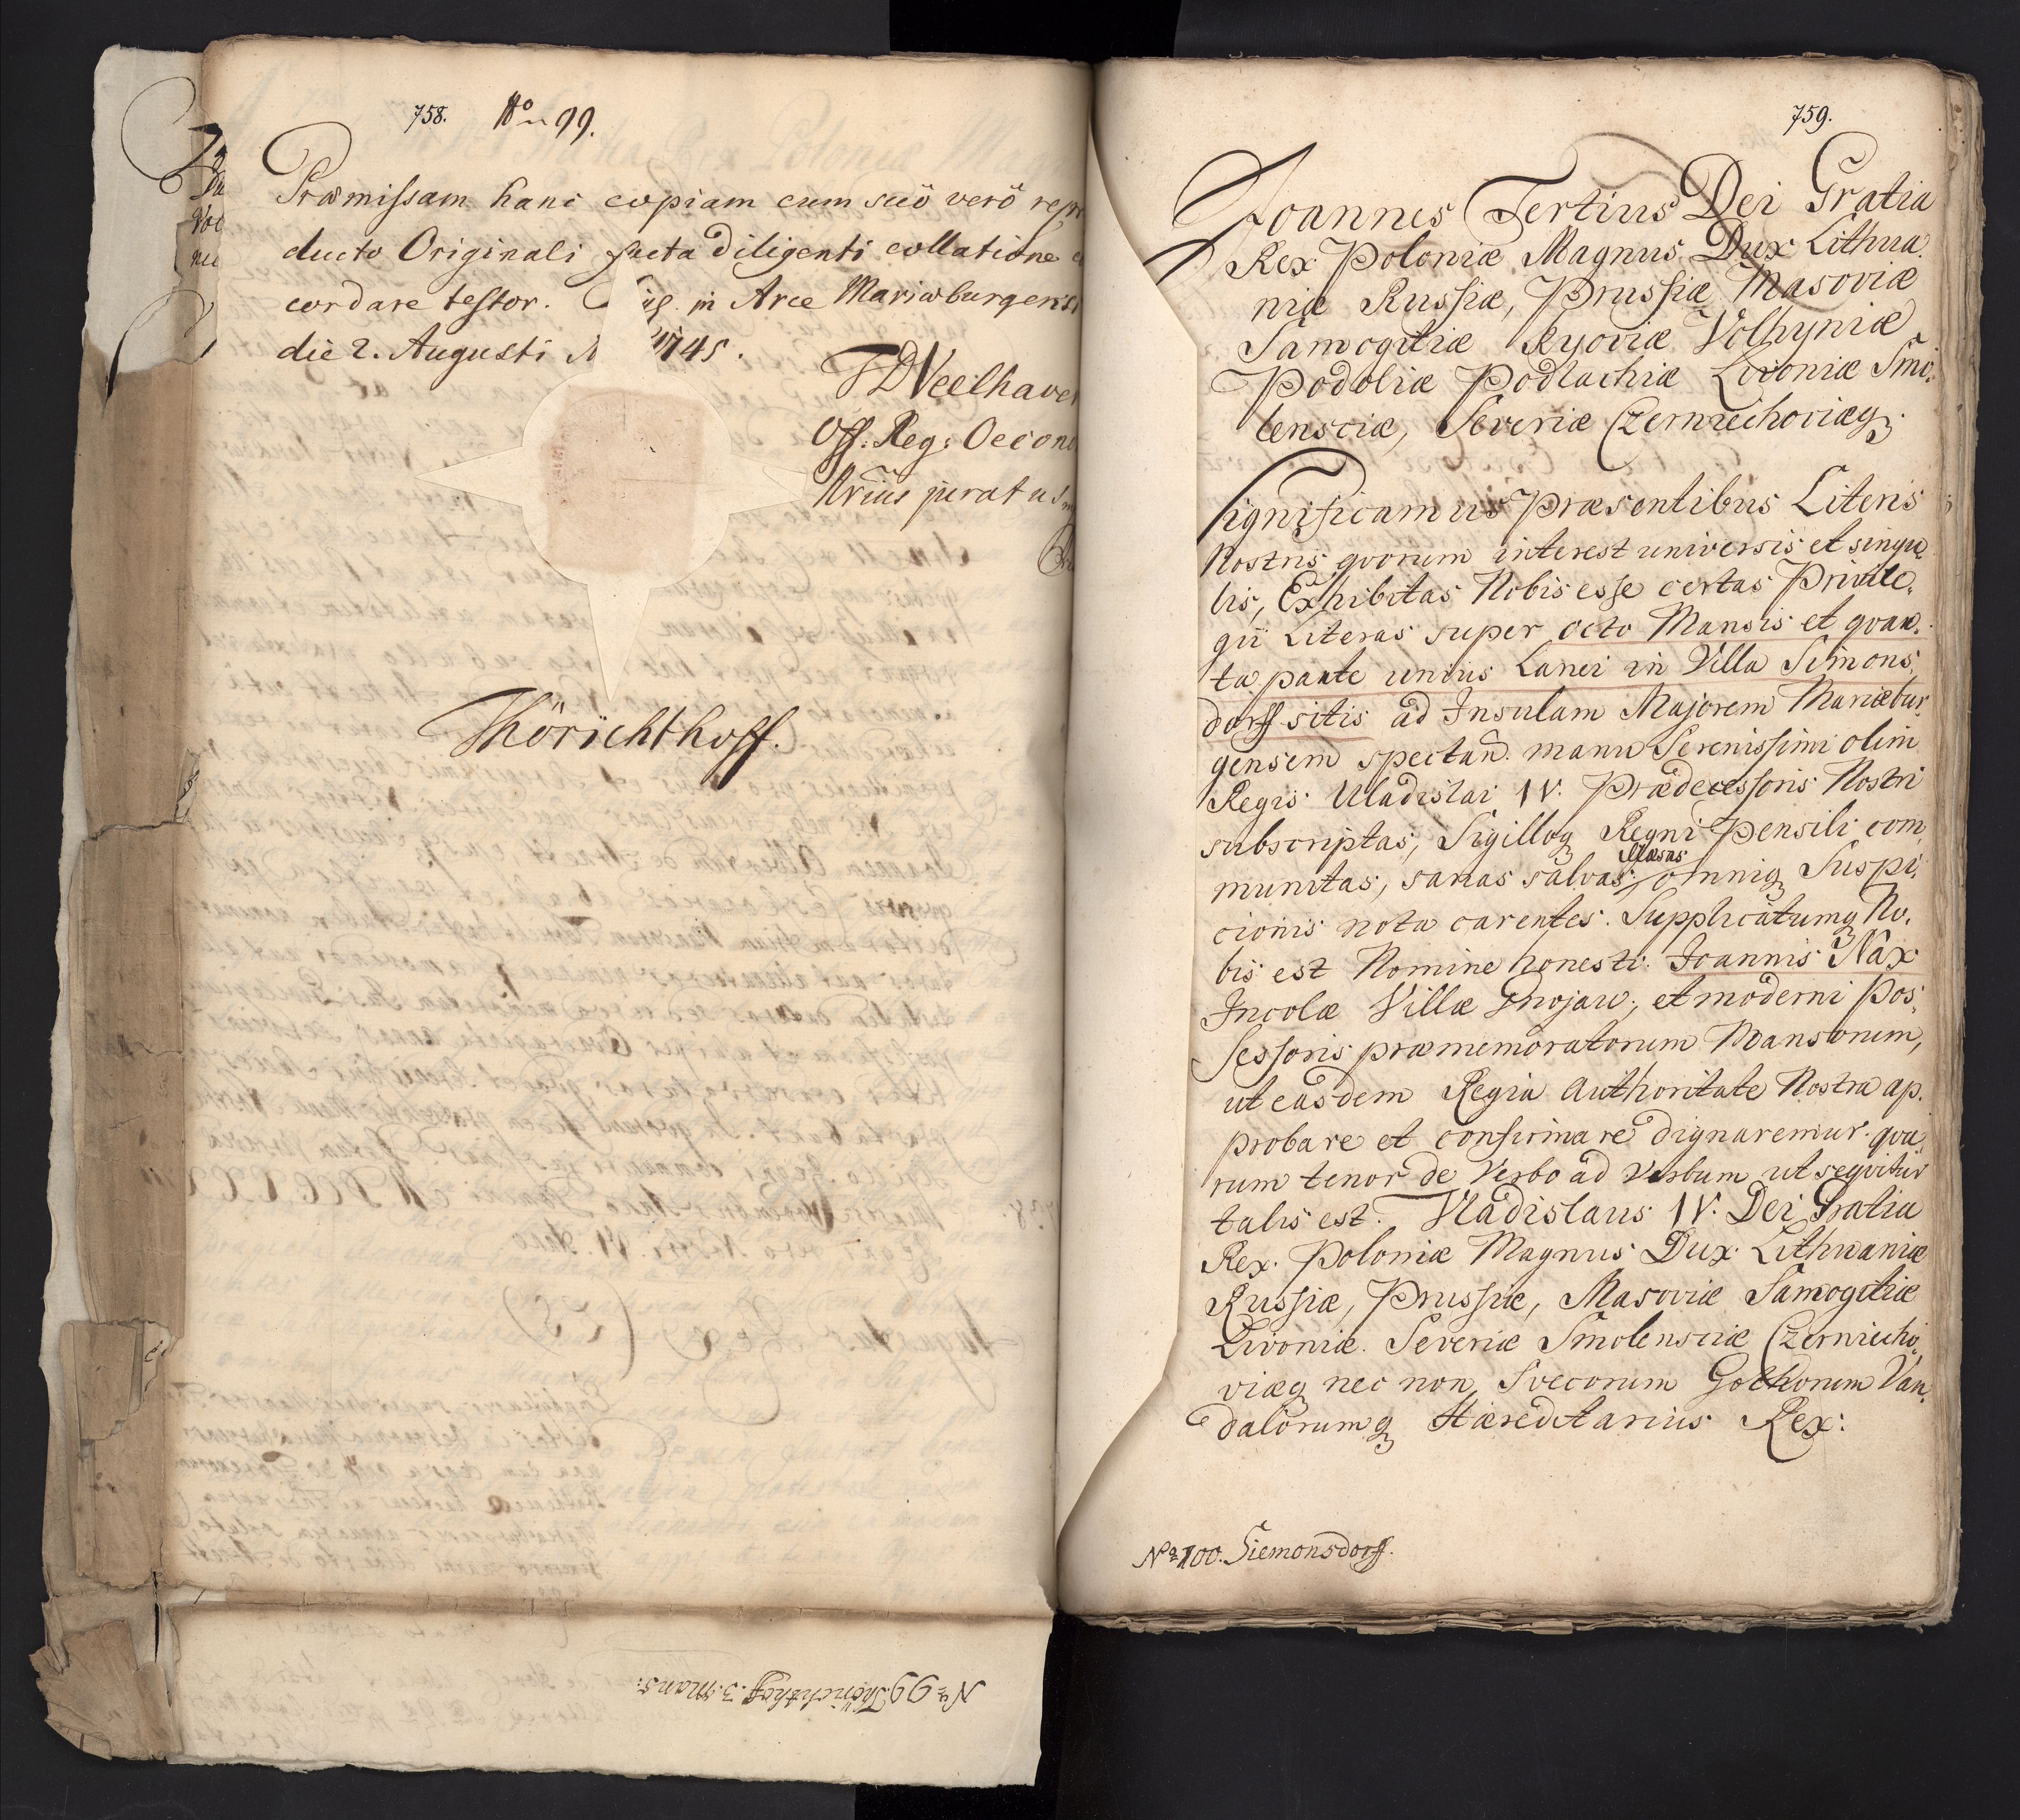 758. No 99.
Præmissam hanc copiam cum suô verô repro
ducto Originali facta diligenti collatione
cordare testor. in Arce Mariæburgensi
die 2. Augusti A 1745.
Off: Reg: Oecono
Nrius juratus
Thörichthoff.
No 99. Thörichthoff. 3. Mans:
759.
Joannes Tertius Dei Gratia
Rex Poloniæ Magnus Dux Lithua
niæ Russiæ, Prussiæ Masoviæ
Samogitiæ Kyoviæ Volhyniæ
Podoliæ Podlachiæ Livoniæ Smo,
lensciæ, Severiæ Czerniechoviæq3.
Significamus Præsentibus Literis
Nostris qvorum interest universis et singu,
lis, Exhibitas Nobis esse certas Privile,
gii Literas super octo Mansis et qvar,
ta parte unius Lanei in Villa Simons,
dorff sitis ad Insulam Majorem Mariæbur,
gensem spectan. manu Serenissimi olim
Regis Uladislai IV. Prædecessoris Nostri
subscriptas, Sigilloq3 Regni Pensili com
munitas, sanas salvas, illæsas omniq3 Suspi,
cionis nota carentes. Supplicatumq3 No,
bis est Nomine honesti Joannis Nax
Incolæ Villæ et moderni Pos,
sessoris præmemoratorum Mansorum,
ut easdem Regia Authoritate Nostra ap,
probare et confirmare dignaremur. qva,
rum tenor de Verbo ad Verbum ut seqvitur
talis est. Vladislaus IV. Dei Gratia
Rex Poloniæ Magnus Dux Lithuaniæ
Russiæ, Prussiæ, Masoviæ Samogitiæ
Livoniæ. Severiæ Smolensciæ Czerniecho,
viæq3 nec non Svecorum Gothorum Van,
dalorumq3 Hæreditarius Rex:
No 100. Siemonsdorff.